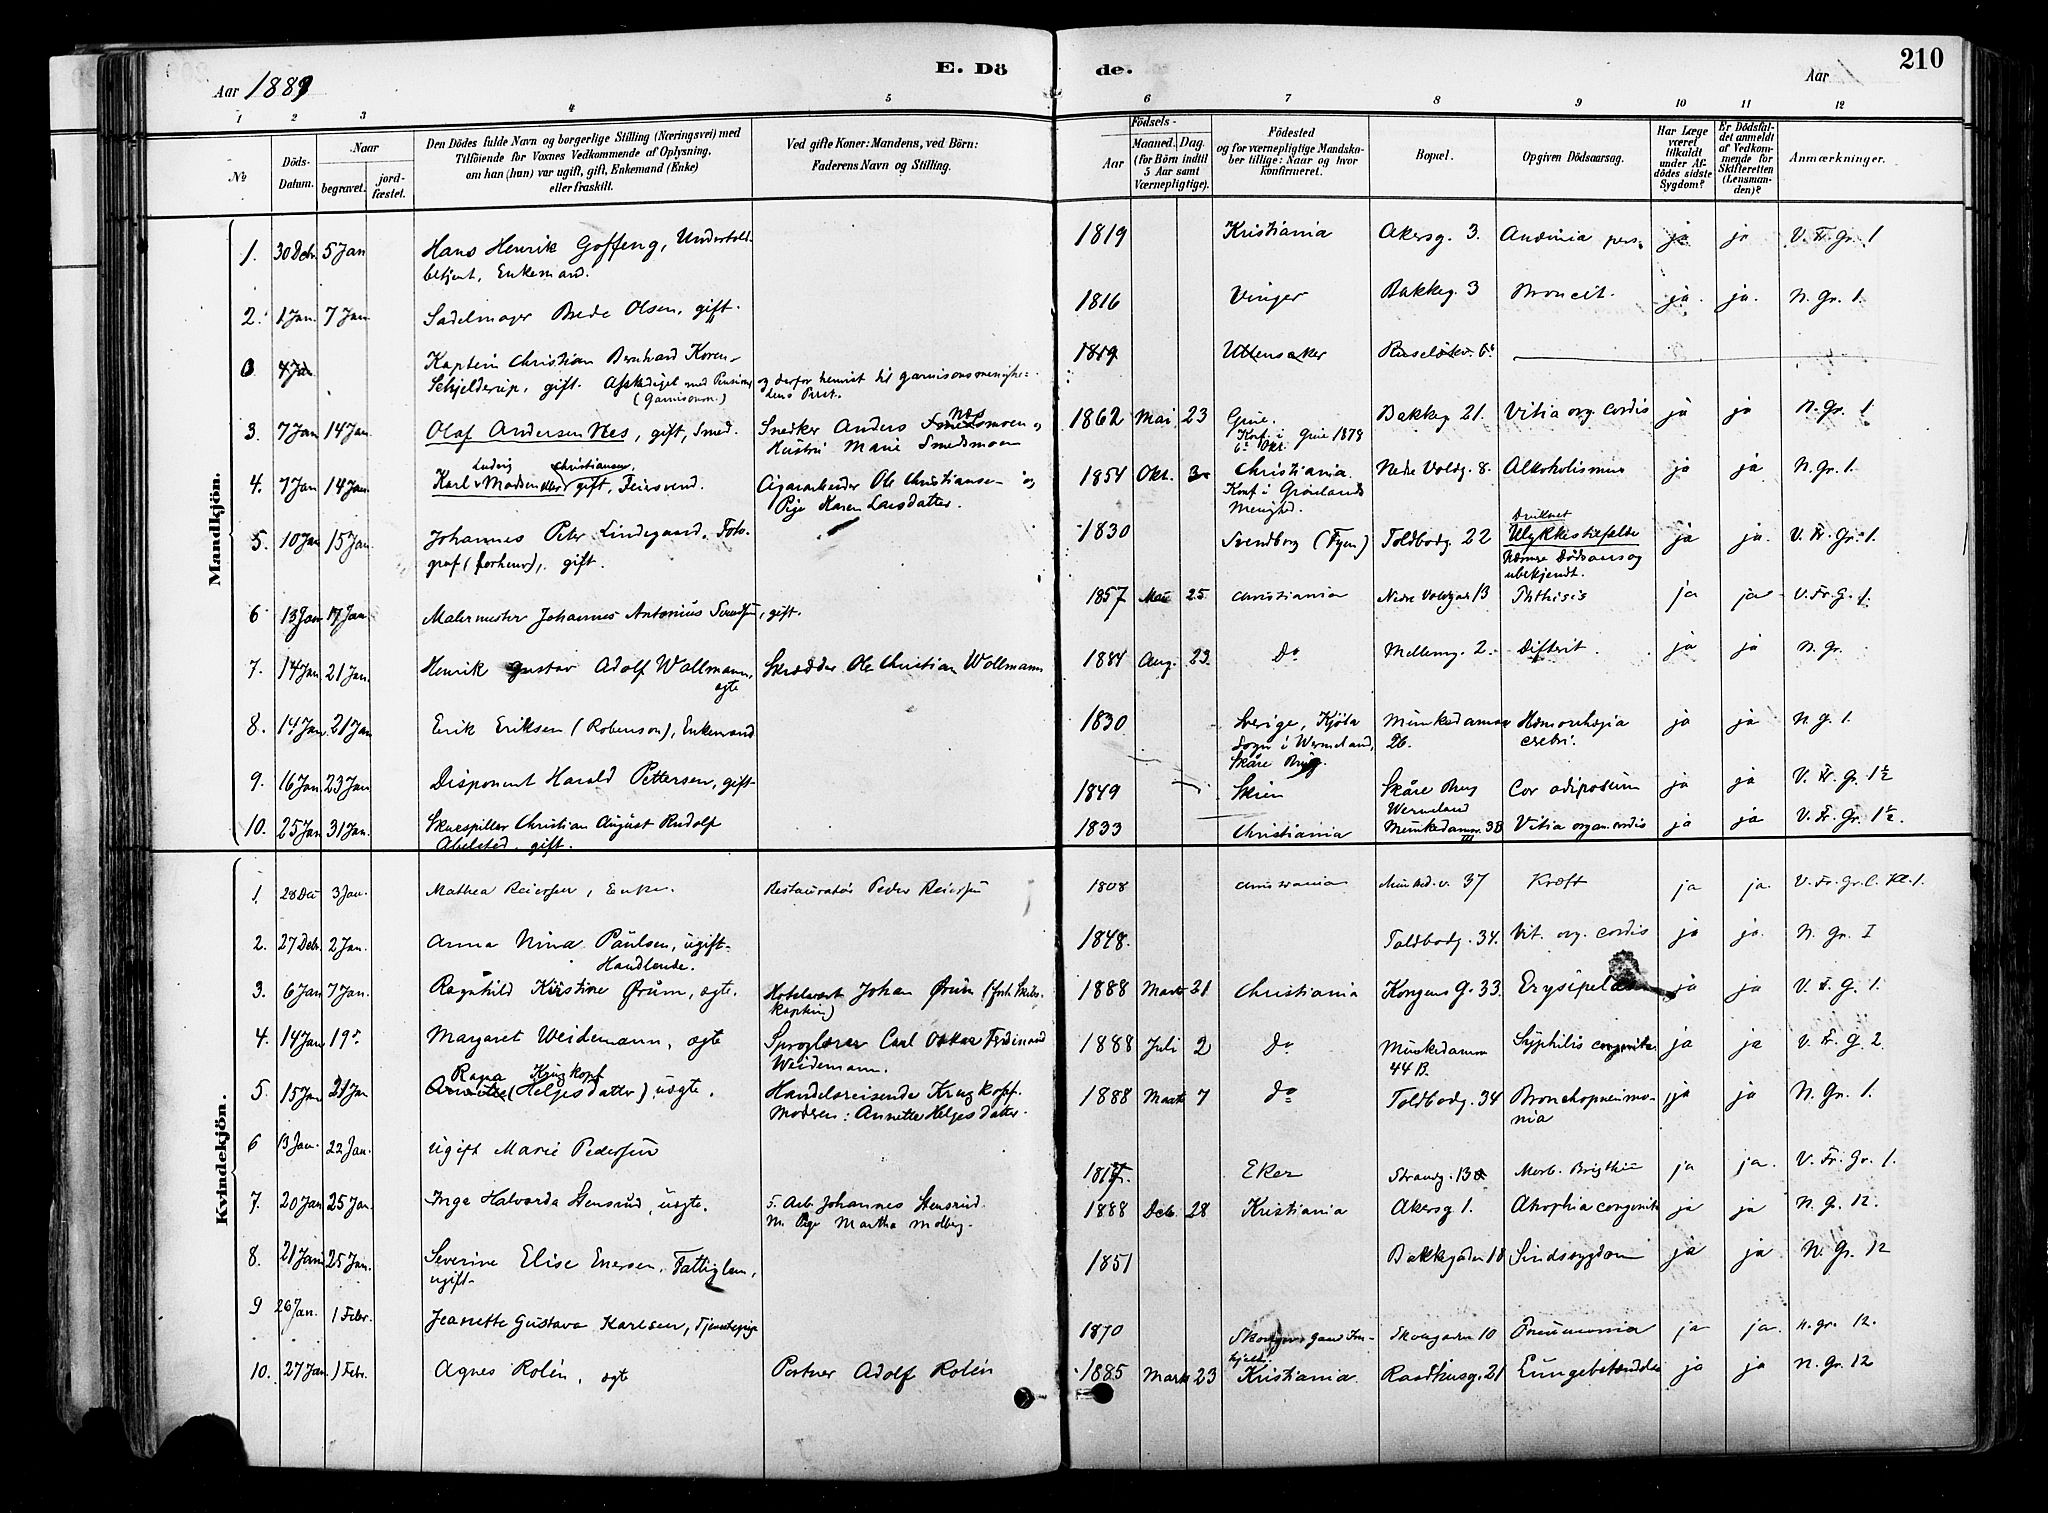 E. Dö de.
210
Aar 1889
Aar
1 2 3 4 5 6 7 8 9 10 11 12
No
Döds-Datum.
Naar
begravet.
jord-fæstet.
Den Dödes fulde Navn og borgerlige Stilling (Næringsvei) med
Tilföiende for Voxnes Vedkommende af Oplysning,
om han (hun) var ugift, gift, Enkemand (Enke)
eller fraskilt.
Ved gifte Koner: Mandens, ved Börn:
Faderens Navn og Stilling.
Födsels-
Aar
Maaned. Dag.
(for Börn indtil
5 Aar samt
Værnepligtige).
Födested
og for værnepligtige Mandska-
ber tillige: Naar og hvor
konfirmeret.
Bopæl.
Opgiven Dödsaarsag.
Har Læge
været
tilkaldt
under Af-
dödes sidste
Sygdom?
Er Dödsfal-
det anmeldt
af Vedkom-
mende for
Skifteretten
(Lensman-
den)?
Anmærkninger.
Mandkjön.
1. 30 Debr. 5 Jan Hans Henrik Goffeng, Undertold- 1819 Kristiania Akersg. 3. pers. ja ja V. Fr. Gr. 1
betjent, Enkemand.
2. 1 Jan. 7 Jan Sadelmager Brede Olsen, gift. 1816 Vinger Bakkeg. 3 ja. ja. N. Gr. 1.
0 4 Jan Kaptein Christian Bernhard Koren- 1819 Ullensaker
Schjelderup, gift. Afskediget med Pension og derfor henvist til garnisonsmenighe-
(Garnisonen.) dens Præst.
3. 7 Jan 14 Jan. Olaf Andersen Nes, gift, Smed. Snedker Anders Smedsmoen Nes og 1862 Mai 23 Grue. Bakkeg 21. Vitia org. cordis ja ja N. Gr. 1
Hustru Marie Smedsmoen Konf. i Grue 1878
6te Okt.
4. 7 Jan 14 Jan. Karl Ludvig Madsen Christiansen, gift, Feiersvend. Cigararbeider Ole Christiansen og 1854 Okt. 30 Christiania. Nedre Voldg. 8. Alkoholismus ja ja N. Gr. 1.
Pige Karen Larsdatter. Konf i Grønlands
Menighd.
5. 10 Jan 15 Jan. Johannes Peter Lindegaard, Foto- 1830 Svendborg (Fyen) Toldbodg. 22 Druknet Ulykkestilfælde ja ja. V. Fr. Gr. 1.
graf (forhenv), gift. Nærmere Dødsaarsag
ubekjendt.
6 13 Jan 17 Jan. Malermester Johannes Antonius Svendsen, gift. 1857 Mai 25 Christiania Nedre Voldgade 13 Phthisis ja ja V. Fr. G. 1.
7. 14 Jan 21 Jan. Henrik Gustav Adolf Wollmann, Skrædder Ole Christian Wollmann 1884 Aug. 23. Do Mellemg. 2. Difterit. ja ja N. Gr.
ægte
8. 14 Jan. 21 Jan Erik Eriksen (Robenson), Enkemand 1830 Sverige, Munkedamsv Hæmorrhagia ja ja N. G. 1.
Sogn i Wermeland, 26. crebri.
Skåre Brug.
9. 16 Jan 23 Jan Disponent Harald Pettersen, gift 1849 Skien Skåre Brug Cor adiposum ja ja V. Fr. Gr. 1½
Wermeland
10. 25 Jan 31 Jan. Skuespiller Christian August Rudolf 1833 Christiania Munkedamsv. 3B Vitia organ. cordis ja ja V. Fr. Gr. 1½.
Abelsted, gift. III
Kvindekjön.
1. 28 Dec 3 Jan. Mathea Reiersen, Enke. Restauratør Peder Reiersen 1808 Christiania Munked.v. 37 Kræft ja ja. V. Fr. Gr. C. Kl. 1.
2. 27 Debr. 2 Jan. Anna Nina Paulsen, ugift 1848. Toldbodg. 34. Vit. org. cordis ja ja. N. Gr. I
Handlende.
3. 6 Jan 7 Jan. Ragnhild Kristine Ørum, ægte. Hotelvært Johan Ørum (forh. Skibs- 1888 Marts 21 Christiania Kongens G. 33. Erysipelas ja ja V. F. G. 1.
kaptein)
4. 14 Jan 19 Margaret Weidemann, ægte Sproglærer Carl Oskar Ferdinand 1888 Juli 2 Do Munkedamsv Syphilis congenita ja ja V. Fr. G. 2.
Weidemann. 44 B.
5. 15 Jan 21 Jan Ragna Krugkopf (Helgesdatter), uægte. Handelsreisende Krugkopf. 1888 Marts 7 Do Toldbodg. 34 Bronchopneumo- ja ja N. Gr. 1.
Moderen: Annette Helgesdatter. nia
6 13 Jan. 22 Jan. Ugift Marie Pedersen Eker Strandg. 13 Morb. Brigthii ja ja. V. Fr. Gr. 1.
7. 20 Jan 25 Jan. Inga Halvarda Stensrud, uægte. F. Arb. Johannes Stensrud. 1888 Deb. 28 Kristiania Akersg 1. Atrophia congenita ja ja N. G. 12.
M. Pige Martha Moberg.
8. 21 Jan 25 Jan. Severine Elise Enersen, Fattiglem, 1851 Bakkegaden 18 Sindssygdom ja ja N. Gr. 12
ugift
9 26 Jan. 1 Febr. Jeanette Gustava Karlsen, Tjenestepige 1870 Skovgaden 10 Pneumonia ja ja. N. Gr. 12.
10. 27 Jan. 1 Febr. Agnes Rolén, ægte Portner Adolf Rolén 1885 Marts 23 Kristiania. Raadhusg. 21 Lungebetændelse ja ja N. Gr. 12